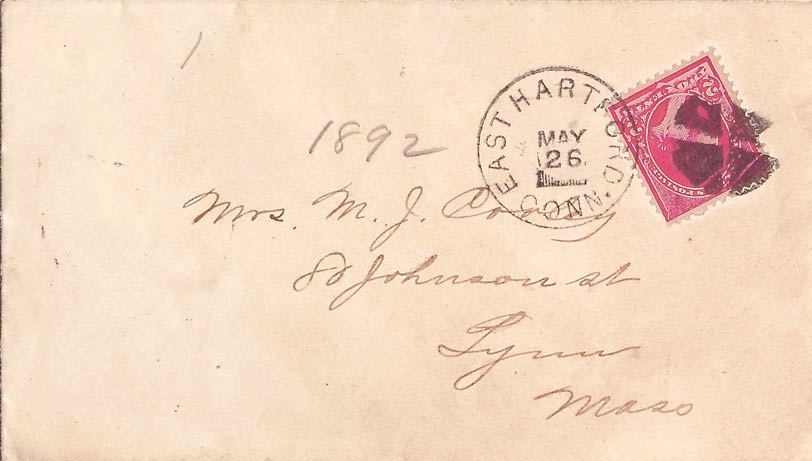 1
EAST HARTFORD CONN.
MAY
26
1892
Mrs. M. J.
80 Johnson st
Lynn
Mass